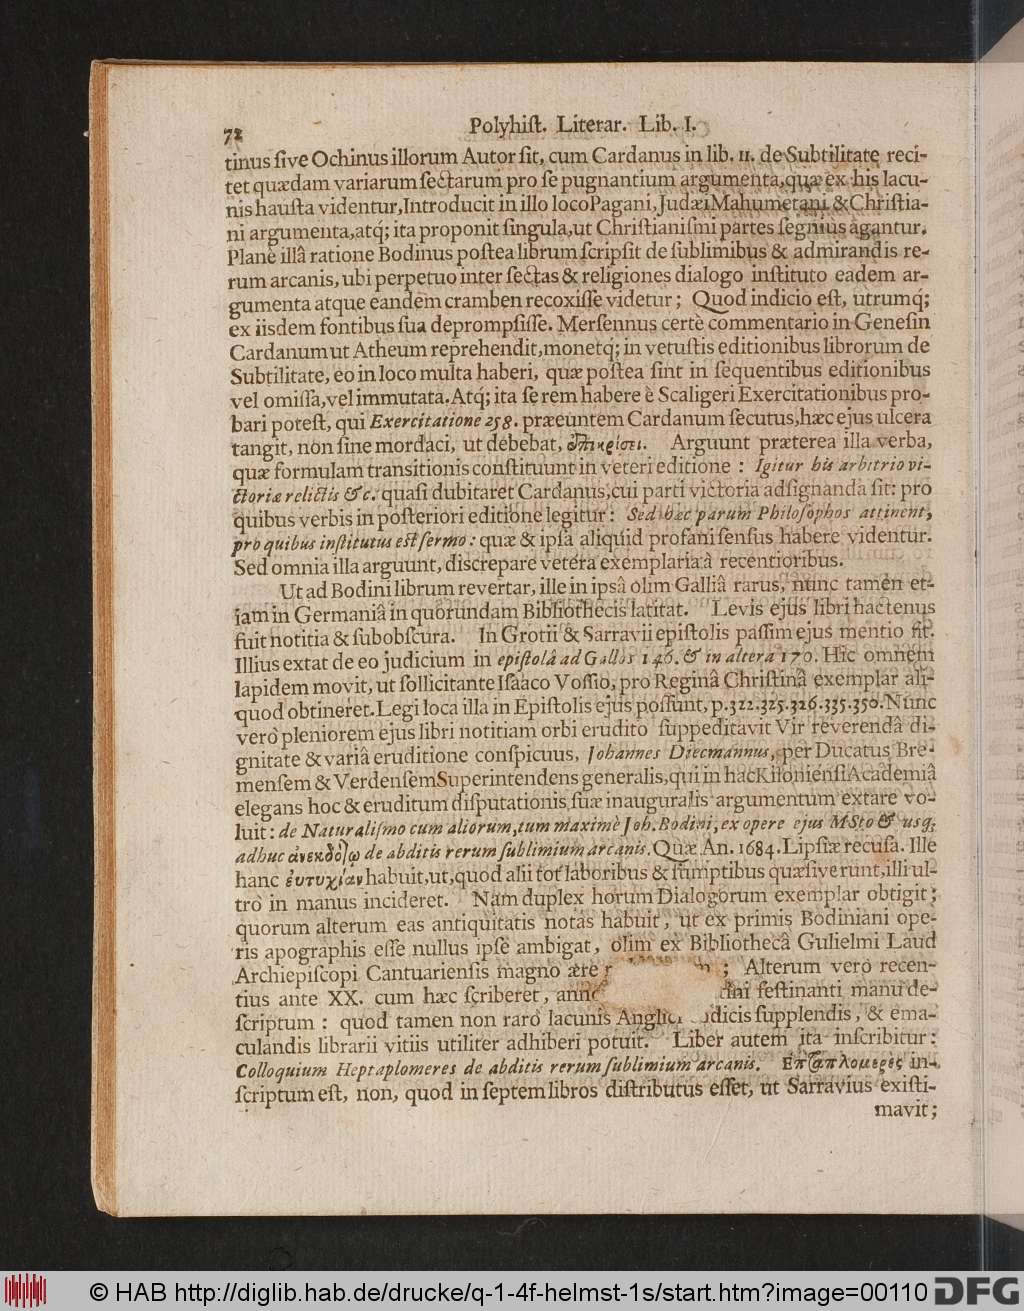 72
Polyhiſt. Literar. Lib. I.
tinus ſive Ochinus illorum Autor ſit, cum Cardanus in lib. 11. de Subtilitate reci-
tet quædam variarum ſectarum pro ſe pugnantium argumenta, quæ ex his lacu-
nis hauſta videntur, Introducit in illo loco Pagani, Judæi Mahumetani & Chriſtia-
ni argumenta, atq́; ita proponit ſingula, ut Chriſtianiſmi partes ſegnius agantur.
Plane illâ ratione Bodinus poſtea librum ſcripſit de ſublimibus & admirandis re-
rum arcanis, ubi perpetuo inter ſectas & religiones dialogo inſtituto eadem ar-
gumenta atque eandem cramben recoxiſſe videtur; Quod indicio eſt, utrumq́;
ex iisdem fontibus ſua depromp­ſiſſe. Merſennus certè commentario in Geneſin
Cardanum ut Atheum reprehendit, monetq́; in vetuſtis editionibus librorum de
Subtilitate, eo in loco multa haberi, quæ poſtea ſint in ſequentibus editionibus
vel omiſſa, vel immutata. Atq́; ita ſe rem habere è Scaligeri Exercitationibus pro-
bari poteſt, qui Exercitatione 258. præeuntem Cardanum ſecutus, hæc ejus ulcera
tangit, non ſine mordaci, ut debebat, ἐπικρίσει. Arguunt præterea illa verba,
quæ formulam transitionis conſtituunt in veteri editione: Igitur his arbitrio vi-
ctoriæ relictis &c. quaſi dubitaret Cardanus, cui parti victoria adſignanda ſit: pro
quibus verbis in poſteriori editione legitur: Sed hæc parum Philoſophos attinent,
pro quibus inſtitutus eſt ſermo: quæ & ipſa aliquid profani ſenſus habere videntur.
Sed omnia illa arguunt, discrepare vetera exemplaria à recentioribus.
Ut ad Bodini librum revertar, ille in ipsâ olim Galliâ rarus, nunc tamen et-
jam in Germaniâ in quorundam Bibliothecis latitat. Levis ejus libri hactenus
fuit notitia & ſubobſcura. In Grotii & Sarravii epiſtolis paſſim ejus mentio fit.
Illius extat de eo judicium in epiſtolâ ad Gallos 146. & in altera 170. Hic omnem
lapidem movit, ut ſollicitante Iſaaco Voſſio, pro Reginâ Chriſtinâ exemplar ali-
quod obtineret. Legi loca illa in Epiſtolis ejus poſſunt, p. 322. 325. 326. 335. 350. Nunc
verò pleniorem ejus libri notitiam orbi erudito ſuppeditavit Vir reverendâ di-
gnitate & variâ eruditione conſpicuus, Johannes Diecmannus, per Ducatus Bre-
menſem & Verdenſem Superintendens generalis, qui in hac Kiloniensi Academiâ
elegans hoc & eruditum diſputationis ſuæ inauguralis argumentum extare vo-
luit: de Naturaliſmo cum aliorum, tum maximè Joh. Bodini, ex opere ejus MSto & usq;
adhuc ἀνεκδότῳ de abditis rerum ſublimium arcanis. Quæ An. 1684. Lipſiæ recuſa. Ille
hanc ἐυτυχίαν habuit, ut, quod alii tot laboribus & ſumptibus quæſiverunt, illi ul-
trò in manus incideret. Nam duplex horum Dialogorum exemplar obtigit;
quorum alterum eas antiquitatis notas habuit, ut ex primis Bodiniani ope-
ris apographis eſſe nullus ipſe ambigat, olim ex Bibliothecâ Gulielmi Laud
Archiepiſcopi Cantuarienſis magno ære ; Alterum verò recen-
tius ante XX. cum hæc ſcriberet, feſtinanti manu de-
ſcriptum: quod tamen non rarò lacunis Anglici ſupplendis, & ema-
culandis librarii vitiis utiliter adhiberi potuit. Liber autem ita inſcribitur:
Colloquium Heptaplomeres de abditis rerum ſublimium arcanis. Ἑπταπλομερὲς in-
ſcriptum eſt, non, quod in ſeptem libros diſtributus eſſet, ut Sarravius exiſti-
mavit;
© HAB http://diglib.hab.de/drucke/q-1-4f-helmst-1s/start.htm?image=00110 DFG